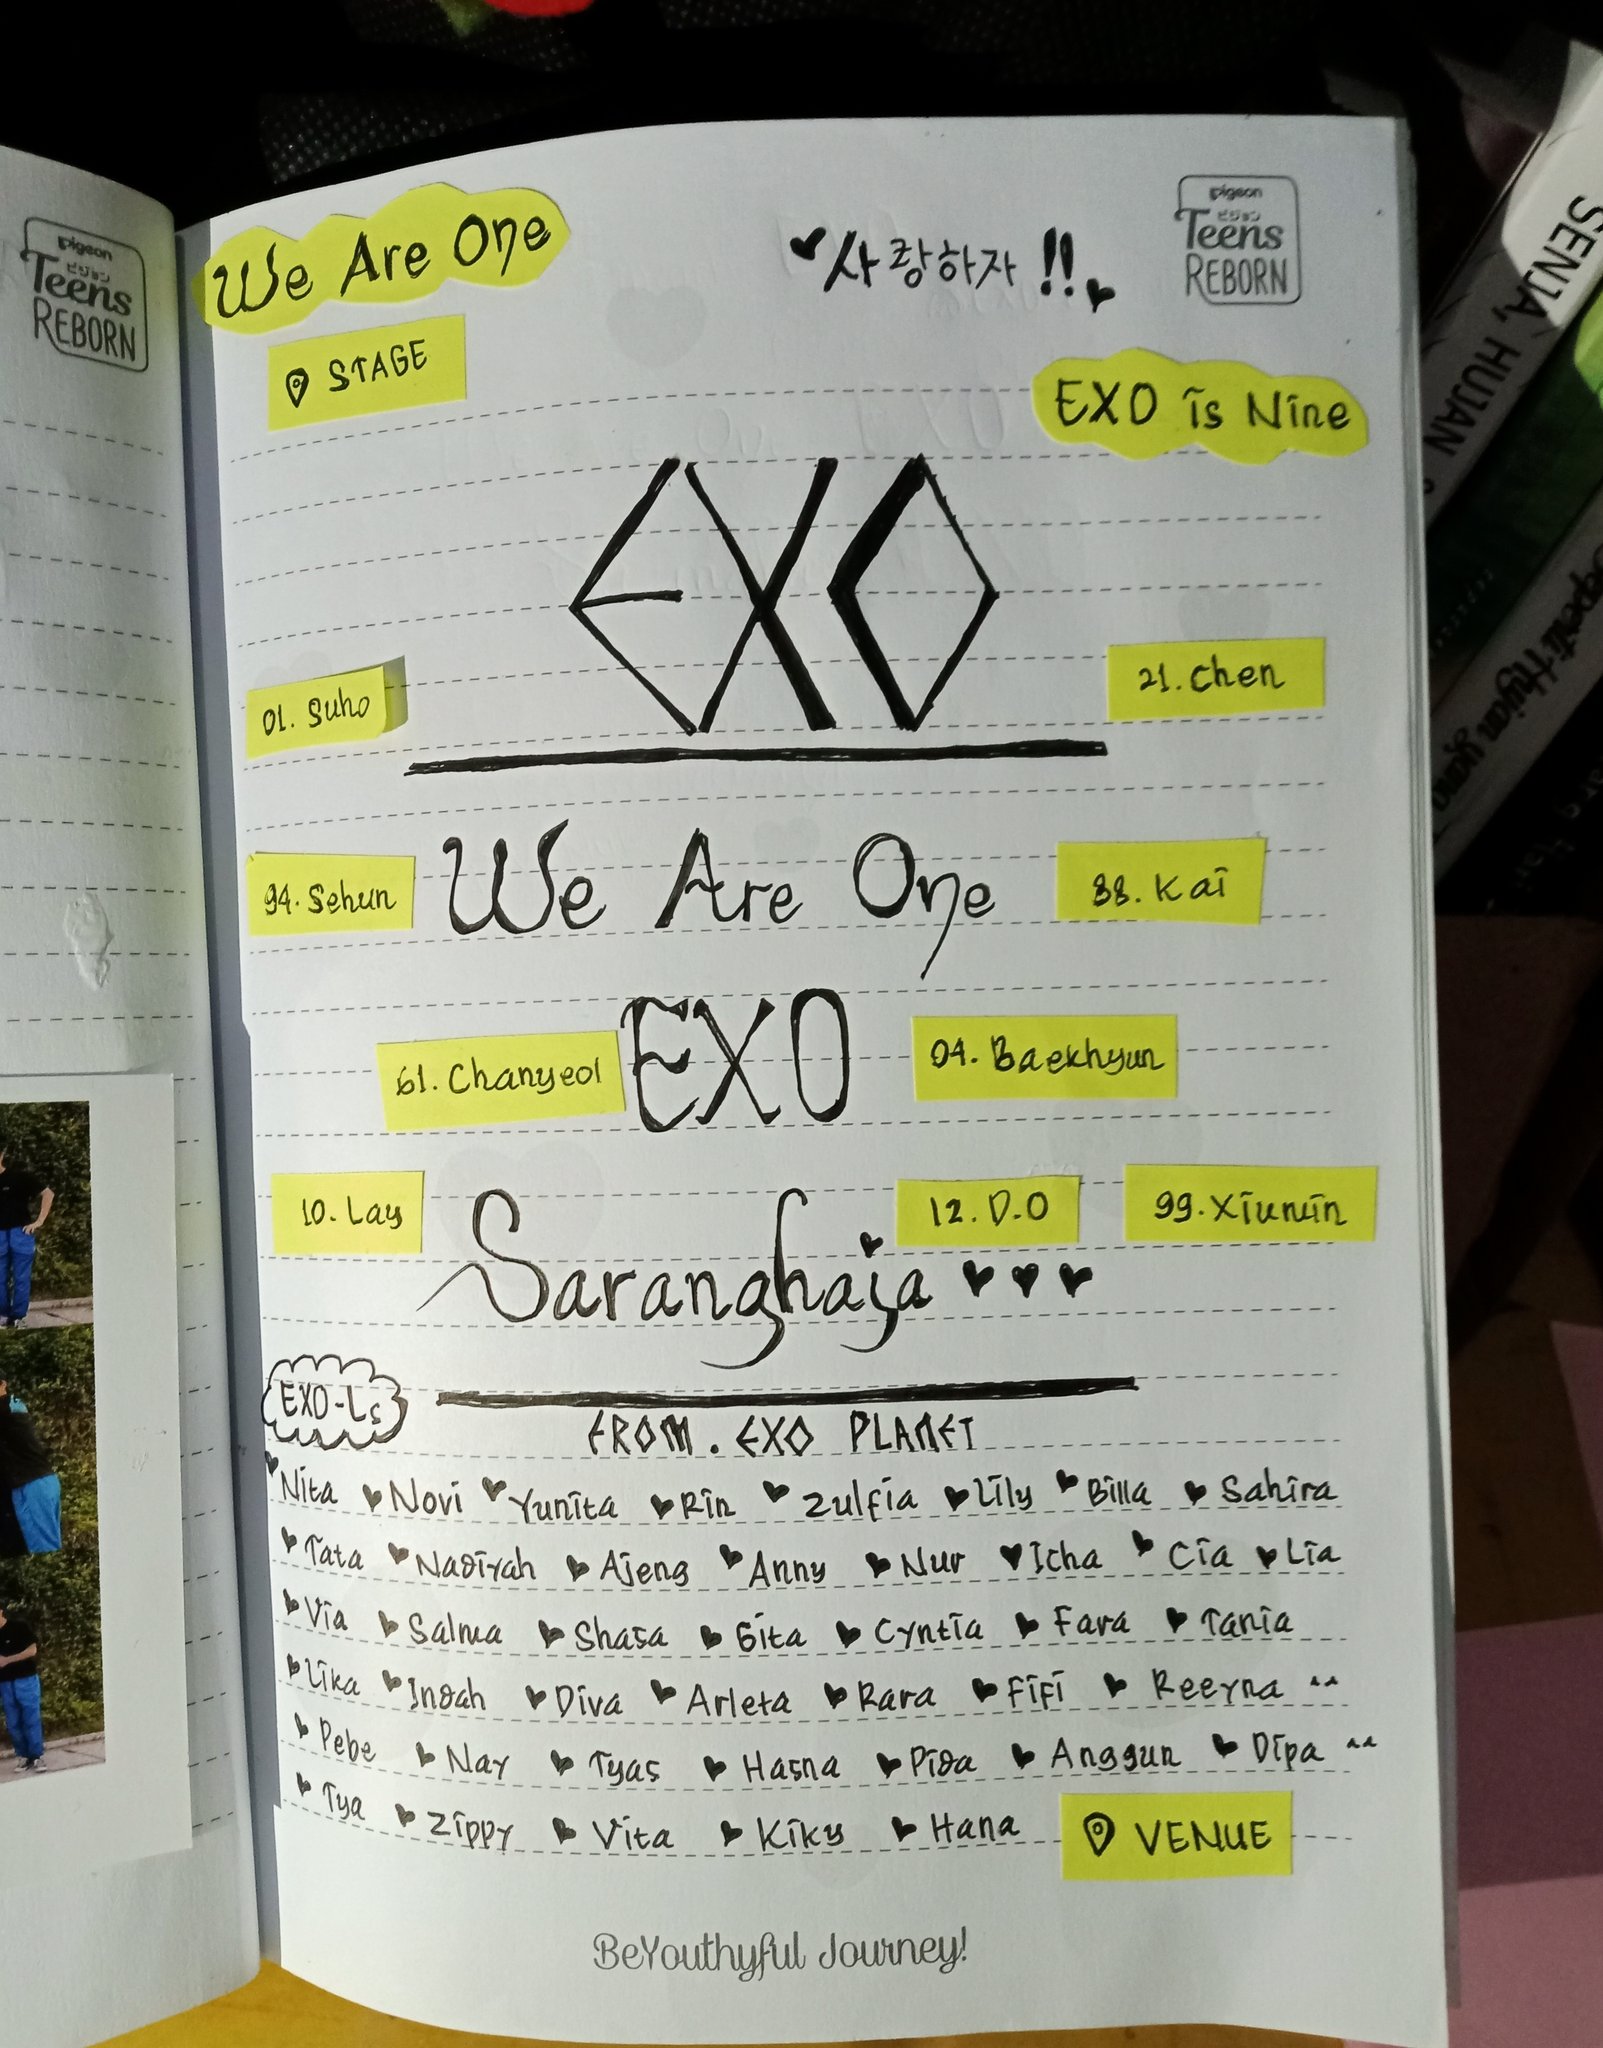 pigeon
ピジョン
Teens
REBORN
We Are One
♥사랑하자!!♥
pigeon
ピジョン
Teens
REBORN
STAGE
EXO is Nine
EXO
01. Suho
21. Chen
94. Sehun
We Are One
88. Kai
61. Chanyeol
EXO
04. Baekhyun
10. Lay
12. D.O
99. Xiumin
Saranghaja ♥♥♥
EXO-Ls
FROM. EXO PLANET
♥Nita ♥Novi ♥Yunita ♥Rin ♥Zulfia ♥Lily ♥Billa ♥Sahira
♥Tata ♥Nadiyah ♥Ajeng ♥Anny ♥Nur ♥Icha ♥Cia ♥Lia
♥Via ♥Salma ♥Shasa ♥Gita ♥Cyntia ♥Fara ♥Tania
♥Lika ♥Indah ♥Diva ♥Arleta ♥Rara ♥Fifi ♥Reeyna ^^
♥Pebe ♥Nay ♥Tyas ♥Hasna ♥Pida ♥Anggun ♥Dipa ^^
♥Tya ♥Zippy ♥Vita ♥Kiky ♥Hana
VENUE
BeYouthyful Journey!
SENJA, HUJAN
Hujan yang